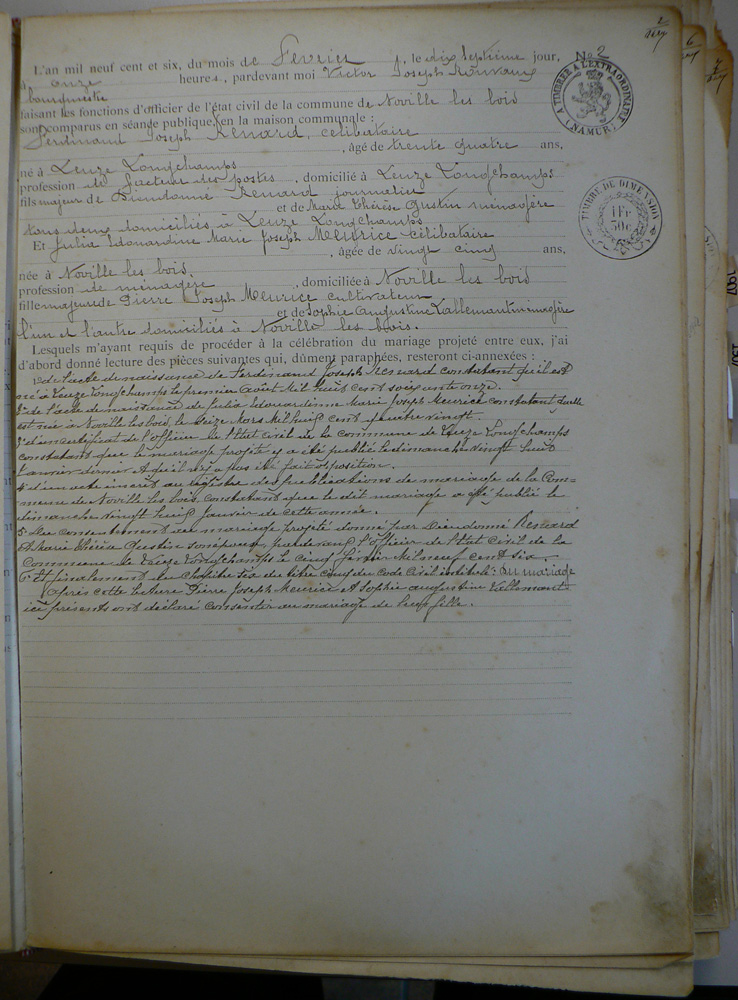 L'an mil neuf cent et six, du mois de Février, le dix septième jour, N° 2
à onze heures, pardevant moi Victor Joseph
bourgmestre
faisant les fonctions d'officier de l'état civil de la commune de Noville les bois
sont comparus en séance publique, en la maison communale :
Ferdinand Joseph Renard, célibataire
, âgé de trente quatre ans,
né à Leuze Longchamps
profession de facteur des postes, domicilié à Leuze Longchamps
fils majeur de Dieudonné Renard journalier
et de Marie Thérèse Gustin ménagère
tous deux domiciliés à Leuze Longchamps
Et Julia Edouardine Marie Joseph Meurice célibataire
, âgée de vingt cinq ans,
née à Noville les bois.
profession de ménagère, domiciliée à Noville les bois
fille majeure de Pierre Joseph Meurice cultivateur
et de Sophie Augustine Vallemant ménagère
l'un et l'autre domiciliés à Noville les bois.
Lesquels m'ayant requis de procéder à la célébration du mariage projeté entre eux, j'ai
d'abord donné lecture des pièces suivantes qui, dûment paraphées, resteront ci-annexées :
1° de l'acte de naissance de Ferdinand Joseph Renard constatant qu'il est
né à Leuze Longchamps le premier août Mil huit cent soixante onze.
2° de l'acte de naissance de Julia Edouardinne Marie Joseph Meurice constatant qu'elle
est née à Noville les bois, le seize Mars Mil huit cent quatre vingt.
3° d'un certificat de l'officier de l'Etat Civil de la commune de Leuze Longchamps
constatant que le mariage projeté y a été publié le dimanche vingt huit
Janvier dernier et qu'il n'y a pas été fait opposition.
4° d'un acte inscrit au registre des publications de mariage de la Com=
mune de Noville les bois, constatant que le dit mariage a été publié le
dimanche vingt huit Janvier de cette année.
5° Du consentement au mariage projeté donné par Dieudonné Renard
et Marie Thérèse Gustin son épouse, pardevant l'officier de l'Etat Civil de la
Commune de Leuze Longchamps le cinq février Mil neuf cent six.
6° Et finalement du chapitre six du titre cinq du Code Civil intitulé : du mariage
Après cette lecture Pierre Joseph Meurice et Sophie augustine Vallemant
ici présents ont déclaré consentir au mariage de leur fille.
TIMBRE A L'EXTRAORDINAIRE
(NAMUR)
TIMBRE DE DIMENSION
1 Fr
50c